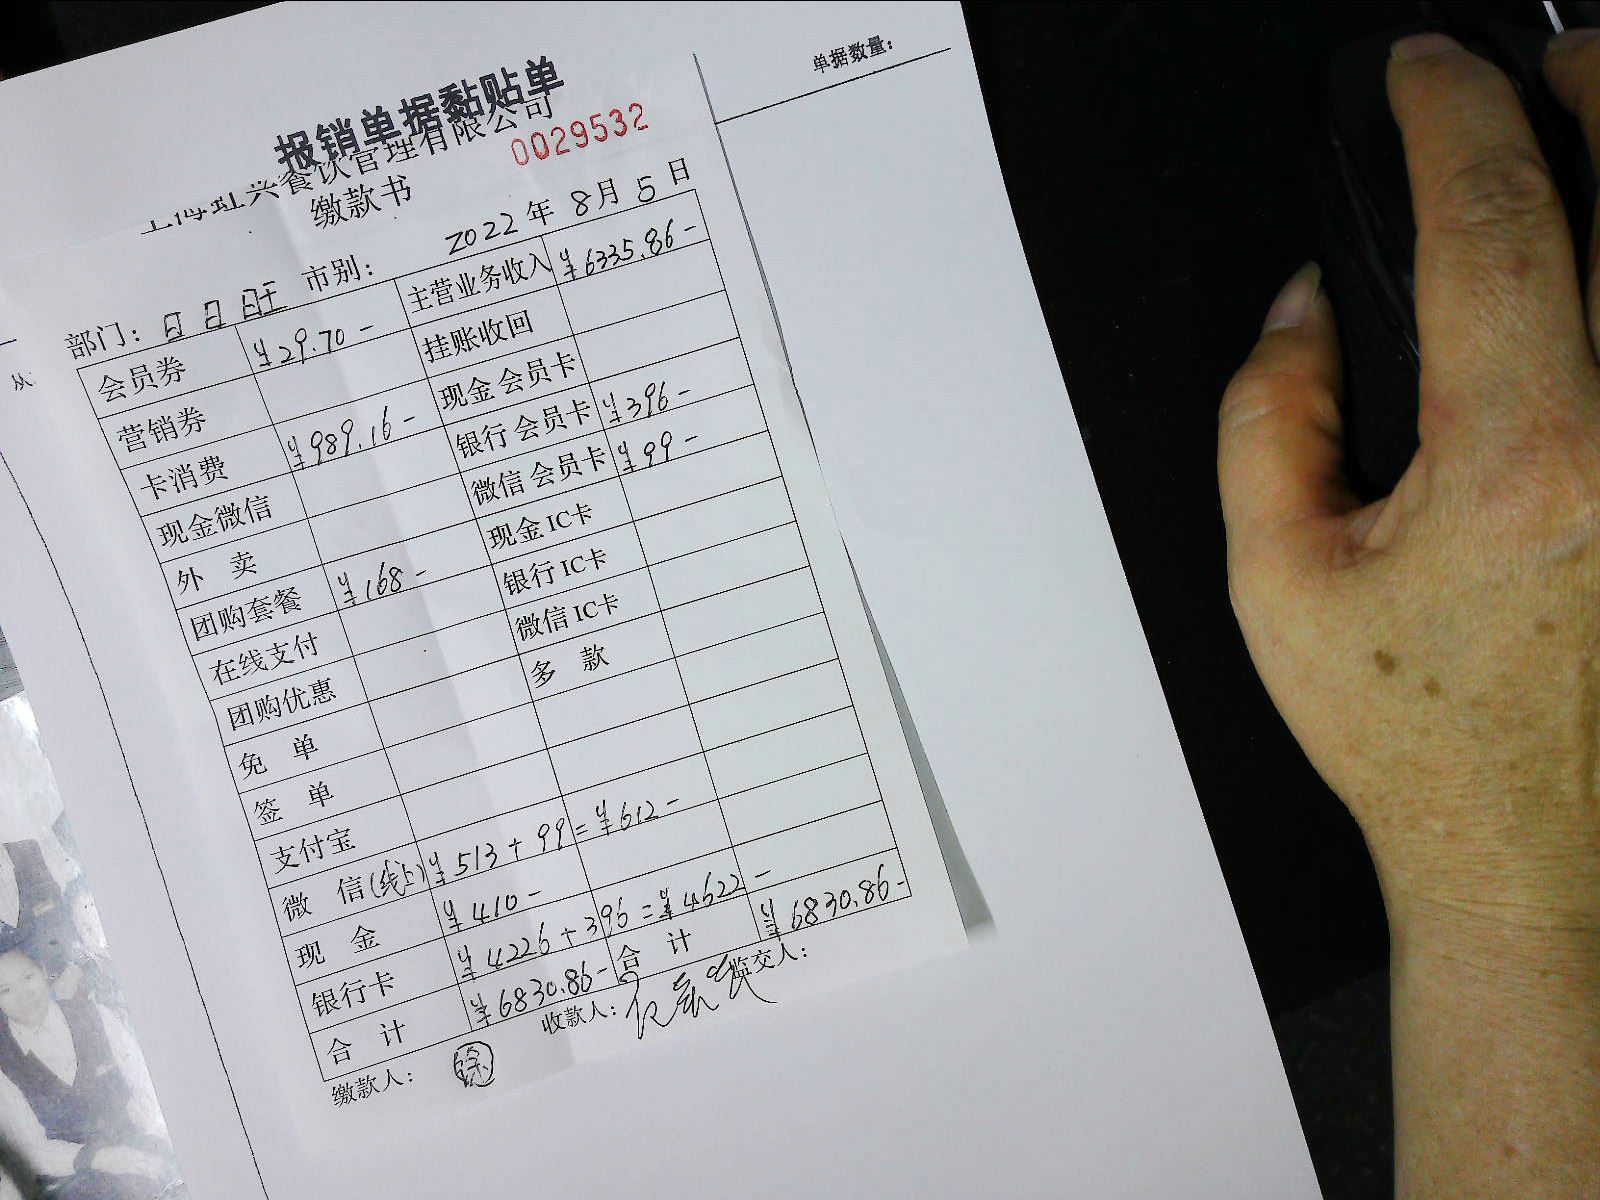 单据数量：
报销单据黏贴单
餐饮管理有限公司
0029532
缴款书
2022年8月5日
部门：日日旺 市别：
会员券 ¥29.70- 主营业务收入 ¥6335.86-
营销券 挂账收回
卡消费 ¥989.16- 现金会员卡
现金微信 银行会员卡 ¥396-
外 卖 微信会员卡 ¥99-
团购套餐 ¥168- 现金IC卡
在线支付 银行IC卡
团购优惠 微信IC卡
免 单 多 款
签 单
支付宝
微 信(线上) ¥513+99=¥612-
现 金 ¥410-
银行卡 ¥4226+396=¥4622-
合 计 ¥6830.86- 合 计 ¥6830.86-
缴款人： 徐 收款人： 监交人：
从